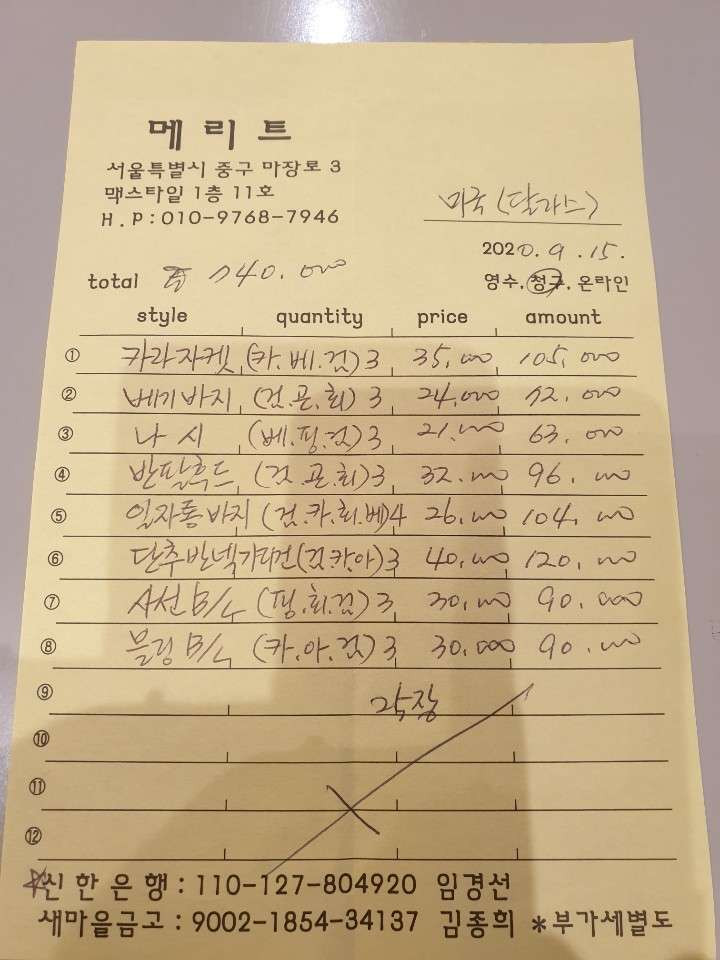 메리트
서울특별시 중구 마장로 3
맥스타일 1층 11호
H.P:010-9768-7946
미국 (달라스)
2020.9.15.
total 740.000
영수.청구.온라인
style quantity price amount
① 카라자켓 (카.베.검)3 35,000 105,000
② 베기바지 (검.곤.회) 3 24,000 72,000
③ 나시 (베.핑.검)3 21,000 63,000
④ 반팔후드 (검.곤.회)3 32,000 96,000
⑤ 일자통바지 (검.카.회.베)4 26,000 104,000
⑥ 단추반넥가디건(검.카.아)3 40,000 120,000
⑦ 사선 B/L (핑.회.검)3 30,000 90,000
⑧ 블링 B/L (카.아.검)3 30,000 90,000
⑨ 막장
⑩
⑪
⑫
신한은행:110-127-804920 임경선
새마을금고:9002-1854-34137 김종희 *부가세별도